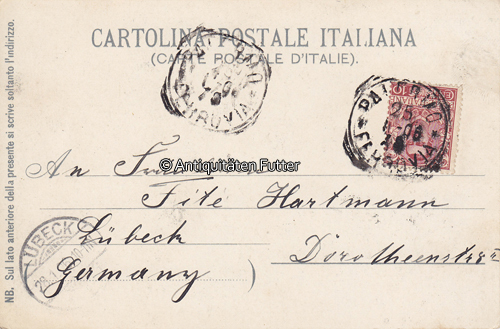 CARTOLINA POSTALE ITALIANA
(CARTE POSTALE D'ITALIE).
NB. Sul lato anteriore della presente si scrive soltanto l'indirizzo.
PALERMO
FERROVIA
PALERMO
25
FERROVIA
© Antiquitäten Futter
An
Fite Hartmann
Lübeck
Dorotheenstr
Germany
LÜBECK